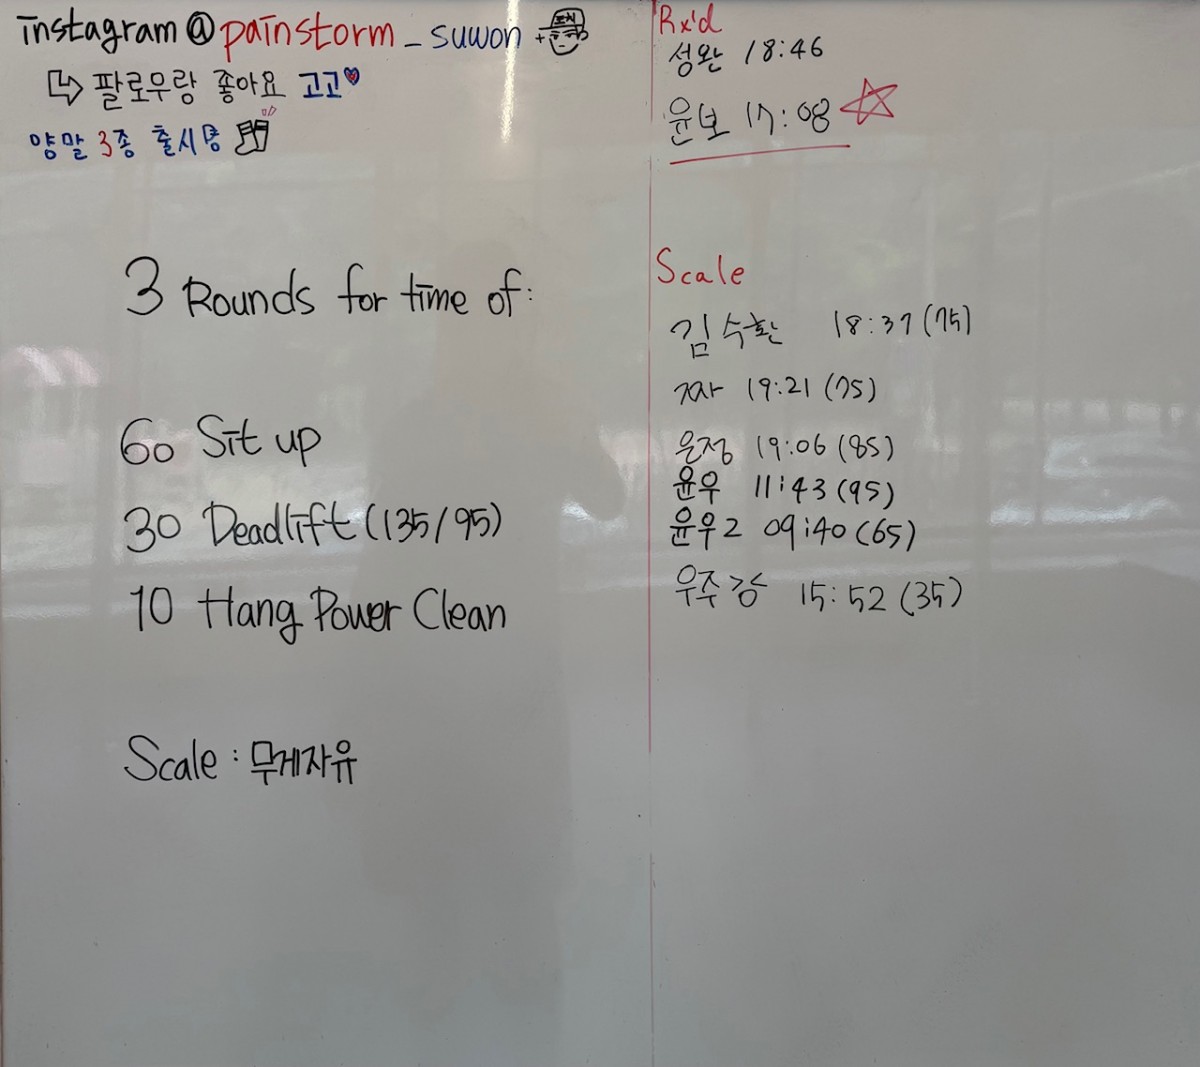 instagram@painstorm_suwon
팔로우랑 좋아요 고고
양말 3종 출시용
3 Rounds for time of:
60 Sit up
30 Deadlift (135/95)
10 Hang Power Clean
Scale : 무게자유
Rx'd
성완 18:46
윤보 17:08
Scale
김수환 18:37 (75)
19:21 (75)
은정 19:06 (85)
윤우 11:43 (95)
윤우2 09:40 (65)
우주강 15:52 (35)